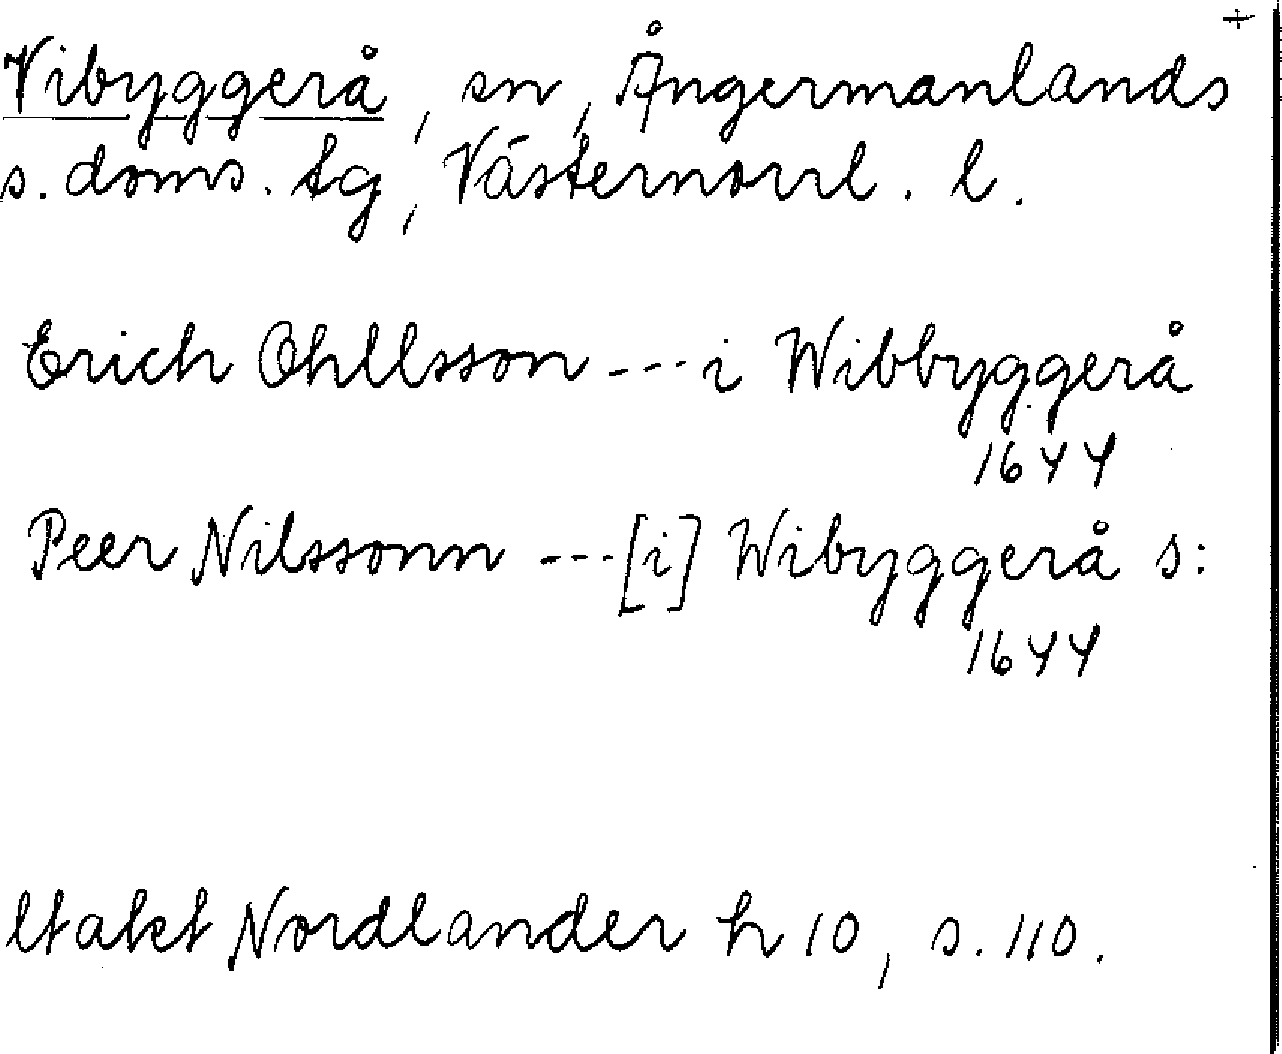 +
Vibyggerå, sn, Ångermanlands
s. doms. tg, Västernorrl. l.
Erich Ohllsson --- i Wibbyggerå
1644
Peer Nilssonn --- [i] Wibyggerå s:
1644
Nordlander h 10, s. 110.